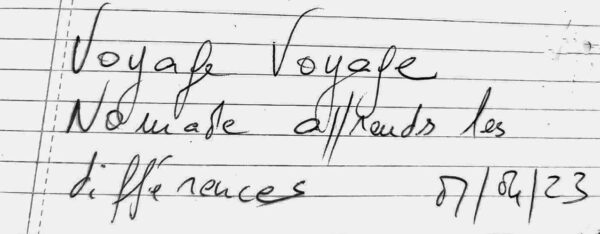 Voyage Voyage
Nomade apprends les
différences 07/04/23